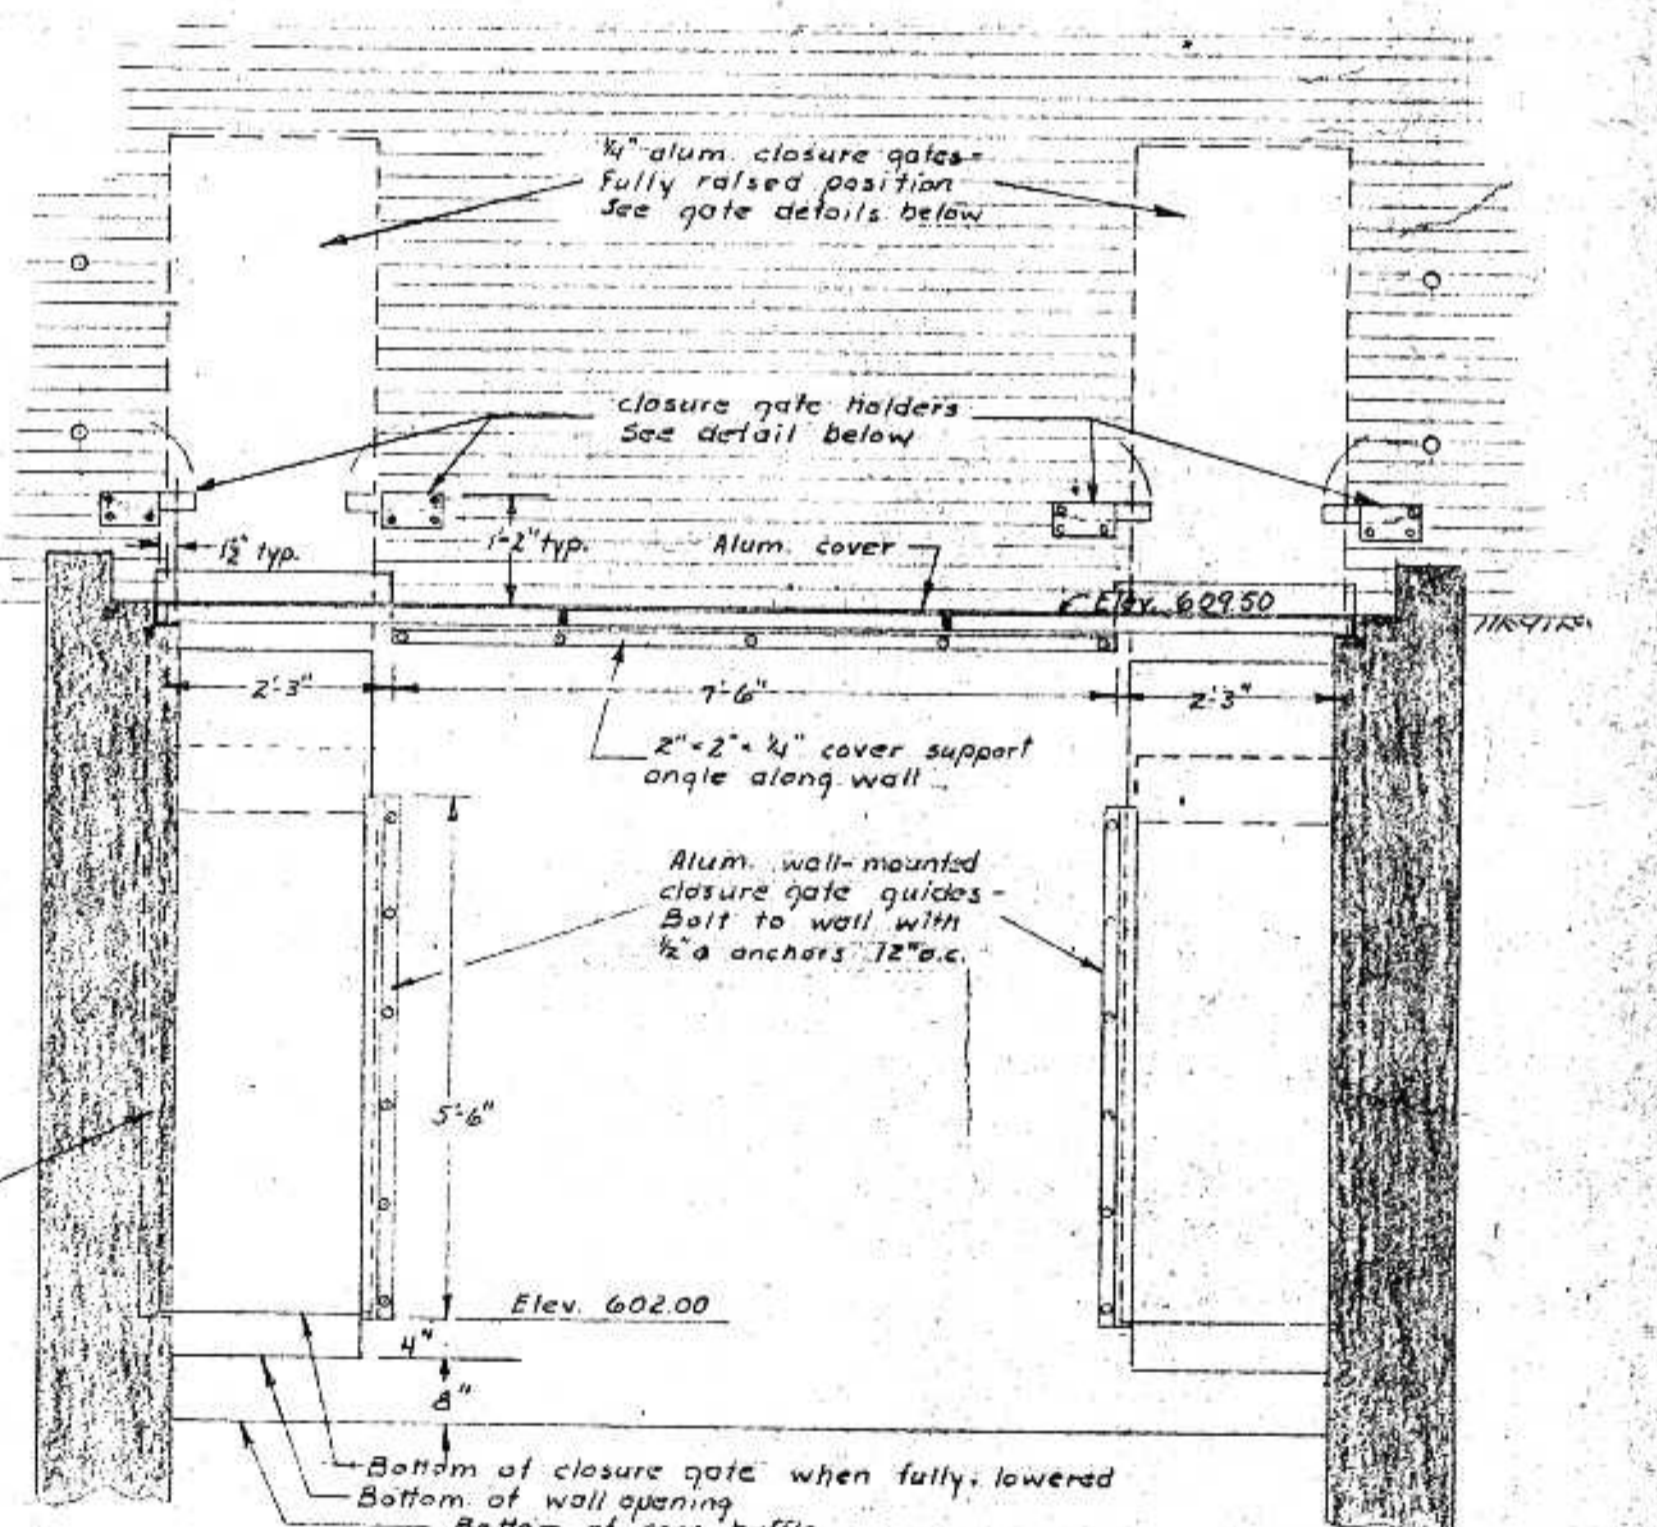 1/4" alum. closure gates -
Fully raised position
See gate details below
closure gate holders
See detail below
1 1/2" typ.
1'-2" typ.
Alum. cover
Elev. 609.50
2'-3"
7'-6"
2'-3"
2" x 2" x 1/4" cover support
angle along wall
Alum. wall-mounted
closure gate guides -
Bolt to wall with
1/2" ø anchors 12" o.c.
5'-6"
Elev. 602.00
4"
8"
Bottom of closure gate when fully lowered
Bottom of wall opening
Bottom of